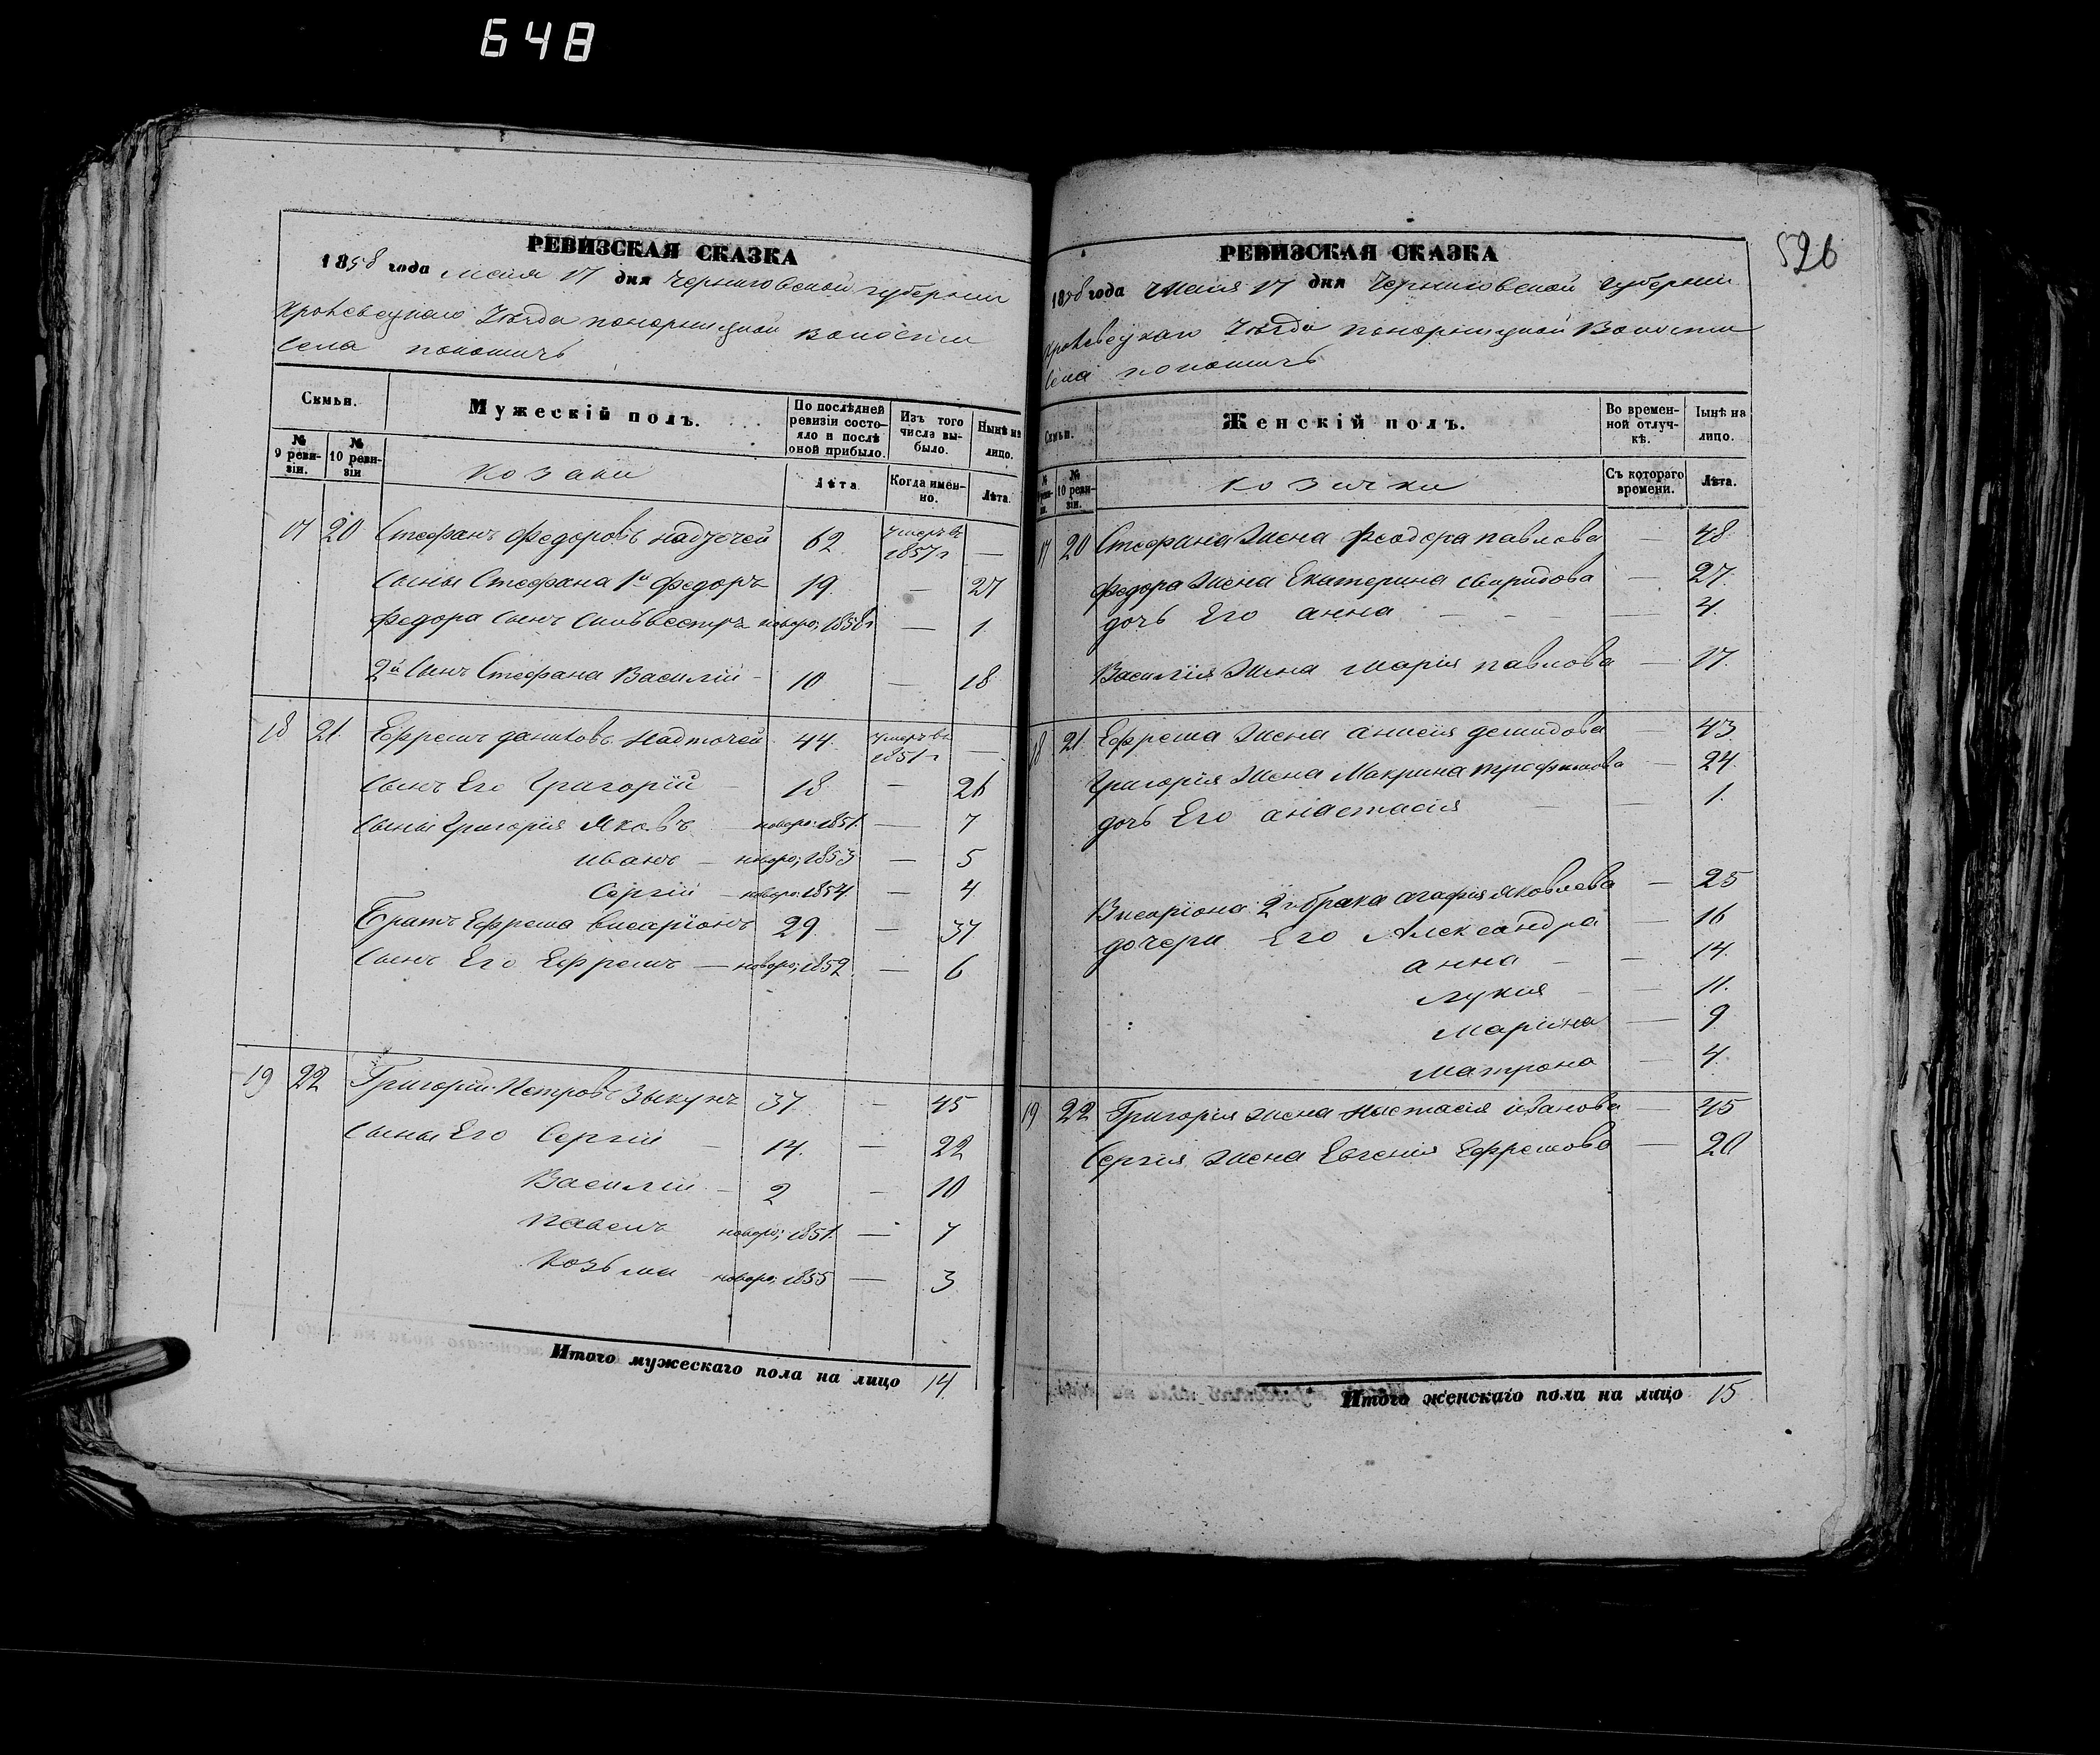 648
РЕВИЗСКАЯ СКАЗКА
1858 года Маія 17 дня Черниговской губерніи
Кролевецкаго Уѣзда Понорницкой волости
Села
Семьи.
Мужескій полъ.
По послѣдней ревизіи состояло и послѣ оной прибыло.
Изъ того числа выбыло.
Нынѣ на лицо.
№ 9 ревизіи.
№ 10 ревизіи
Козаки
Лѣта
Когда именно.
Лѣта.
17 20 Стефанъ Федоровъ Надточей 62 умеръ въ 1857 г —
Сыны Стефана 1й Федоръ 19. — 27
Федора сынъ Сильвестръ новоро; 1858 г — 1
2й Сынъ Стефана Василій - 10 — 18
18 21. Ефремъ Даниловъ Надточей 44. умеръ въ 1851 г —
Сынъ Его Григорій — 18 — 26
Сыны Григорія Яковъ — новоро: 1851. — 7
иванъ — новоро; 1853 — 5
Сергій — новоро: 1854. — 4
Братъ Ефрема висаріонъ 29. — 37
Сынъ Его Ефремъ — новоро; 1852. — 6
19 22 Григорій Петровъ Зыкунъ 37. — 45
Сыны Его Сергій — 14. — 22
Василій — 2 — 10
Павелъ новоро; 1851. — 7
Козьма новоро; 1855 — 3
Итого мужескаго пола на лицо 14.
526
РЕВИЗСКАЯ СКАЗКА
1858 года Маія 17 дня Черниговской губерніи
Кролевецкаго Уѣзда Понорницкой Волости
Села
Семьи.
Женскій полъ.
Во временной отлучкѣ.
Нынѣ на лицо.
№ 10 ревизіи.
Козачки
Съ котораго времени.
Лѣта.
17 20 Стефана Жена Феодора павлова — 48.
Федора Жена Екатерина свиридова — 27.
дочь Его анна — — — 4.
Василія Жена Марія павлова — 17.
18 21. Ефрема Жена анисія демидова — 43
Григорія Жена Макрина трофимова — 24.
дочь Его анастасія — — 1.
Висаріона 2го брака агафія яковлева — 25
дочери Его Александра — 16
анна — — 14.
Лукія — — 11.
Марина — 9
Матрона — 4.
19 22 Григорія жена Настасія иванова — 45
Сергія Жена Евгенія Ефремова — 20
Итого женскаго пола на лицо 15